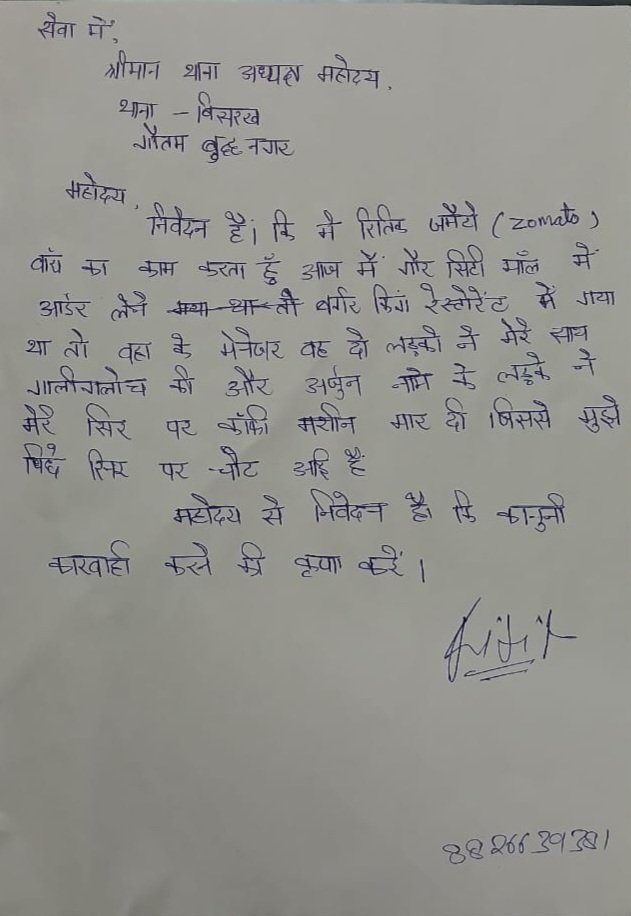 सेवा में,
श्रीमान थाना अध्यक्ष महोदय,
थाना - बिसरख
गौतम बुद्ध नगर
महोदय,
निवेदन है। कि मे रितिक जमैटो (zomato)
वॉय का काम करता हुँ आज में गौर सिटी मॉल में
आर्डर लेने गया था तो बर्गर किंग रेस्टोरेंट में गया
था तो वहा के मेनेजर वह दो लड़को ने मेरे साथ
गालीगलोच की और अर्जुन नाम के लड़के ने
मेरे सिर पर कॉफी मशीन मार दी जिससे मुझे
सिर पर चोट आई हैं
महोदय से निवेदन है। कि कानुनी
कारवाही करने की कृपा करें।
Ritik
8826639381